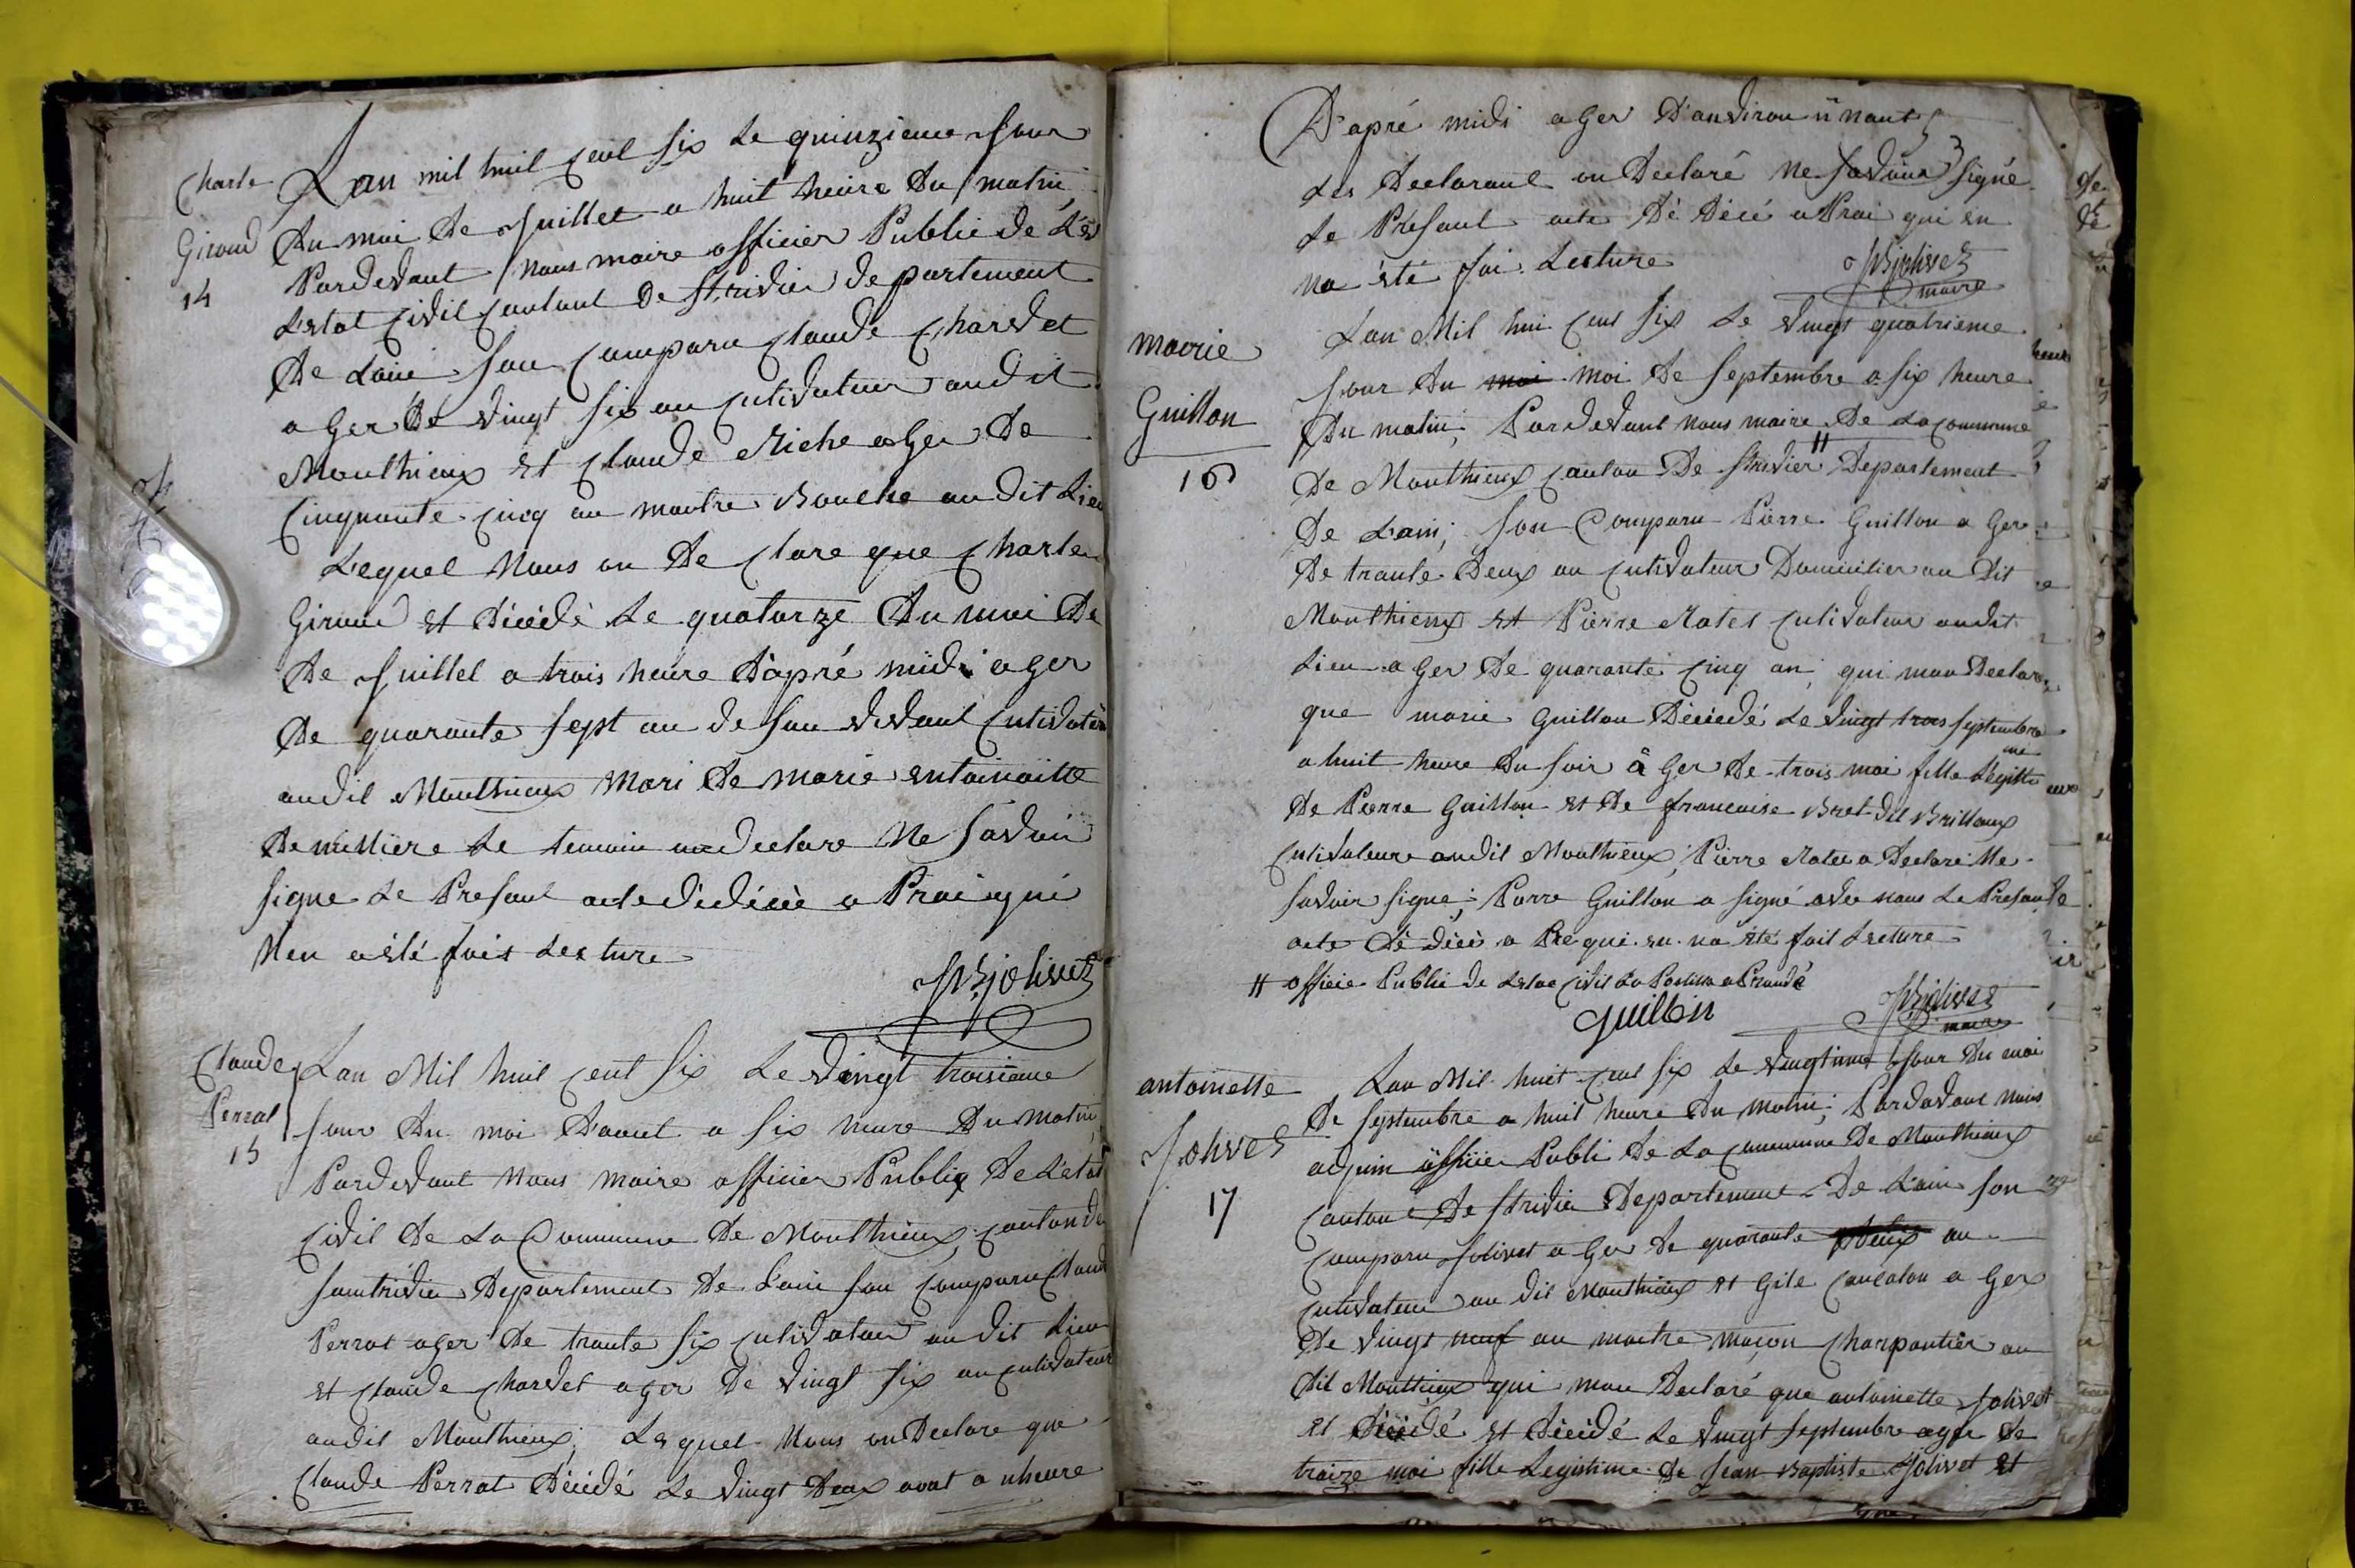 Charle
Giroud
14
Lan mil huit cent six Le quinzieme Jour
Du moi De Juillet a huit heure Du matin
Pardevant nous maire officier Public de
Lestat Civil Cantont De Stridie departement
De Lain son Comparu Claude Charvet
a Ger De vingt six an Cutivateur audit
Monthieux Et Claude Riche a Ger De
Cinquante Cinq an maitre audit Lieu
Lequel Nous on De Clare que Charle
Giroud Et décédé Le quatorze Du moi De
De Juillet a trois heure D'apré midi a Ger
De quarante sept an de son vivant Cutivateur
audit Monthieux Mari De Marie entoinaitte
Le temoin declare Ne savoir
signe Le Presant acte dédécé a Prai qui
Nen a été fait Lecture
JB jolivet
Claude
Perrat
15
Lan Mil huit Cent Six Le vingt troisieme
Jour Du moi D'aout a Six heure Du matin
Pardevant Nous Maire officier Public De Létat
Civil De La Commune De Monthieux, Canton de
Saintridie Departement De Lain son Comparu Claude
Perrat ager De trante six Cutivateur audit Lieu
Et Claude Charvet a ger De vingt six an Cutivateur
audit Monthieux, Lequel Nous on Declare que
Claude Perrat Décédé Le vingt Deux aout a uheure
D'apré midi a Ger D'anviron
Les Declarant on Declaré Ne savoir signé
Le Présant acte Dé Décé a Prai qui en
na été fai Lecture
JB jolivet
maire
marie
Guillon
16
Lan Mil hui Cent Six Le vingt quatrieme
Jour Du moi moi De Septembre a six heure
Du matin, Pardevant nous maire // De La Commune
De Monthieux Canton De Stridier Departement
De Lain; son Comparu Pierre Guillon a Ger
De trante Deux an Cutivateur Domicilier au Dit
Monthieux Et Pierre Cutivateur audit
Lieu a Ger De quarante Cinq an, qui mon Declare
que marie Guillon Décédé Le vingt trois Septembre
a huit heure Du soir a Ger De trois moi fille Légitime
De Pierre Guillon Et De francoise Bret dit Brillaux
Cutivateure audit Monthieux; Pierre a Declaré Ne
savoir signe; Pierre Guillon a signé avec nous Le Presante
acte Dé Décé a Pré qui en na été fait Lecture
// officie Public de Létat Civil
Guillon
JB jolivet
maire
antoinette
Jolivet
17
Lan Mil huit Cent six Le Jour Du moi
De Septembre a huit heure Du Matin; Pardevant Nous
adjoin officier Publi De La Commune De Monthieux
Canton De Stridie Departement De Lain son
Comparu Jolivet a Ger De quarante an
Cutivateur au dit Monthieux Et Gile a Ger
De vingt neuf an maitre maçon Charpantier au
Dit Monthieux qui mon Declaré que antoinette Jolivet
Et Décédé Et Décédé Le vingt Septembre ager De
traize moi fille Legistime De Jean Baptiste Jolivet Et